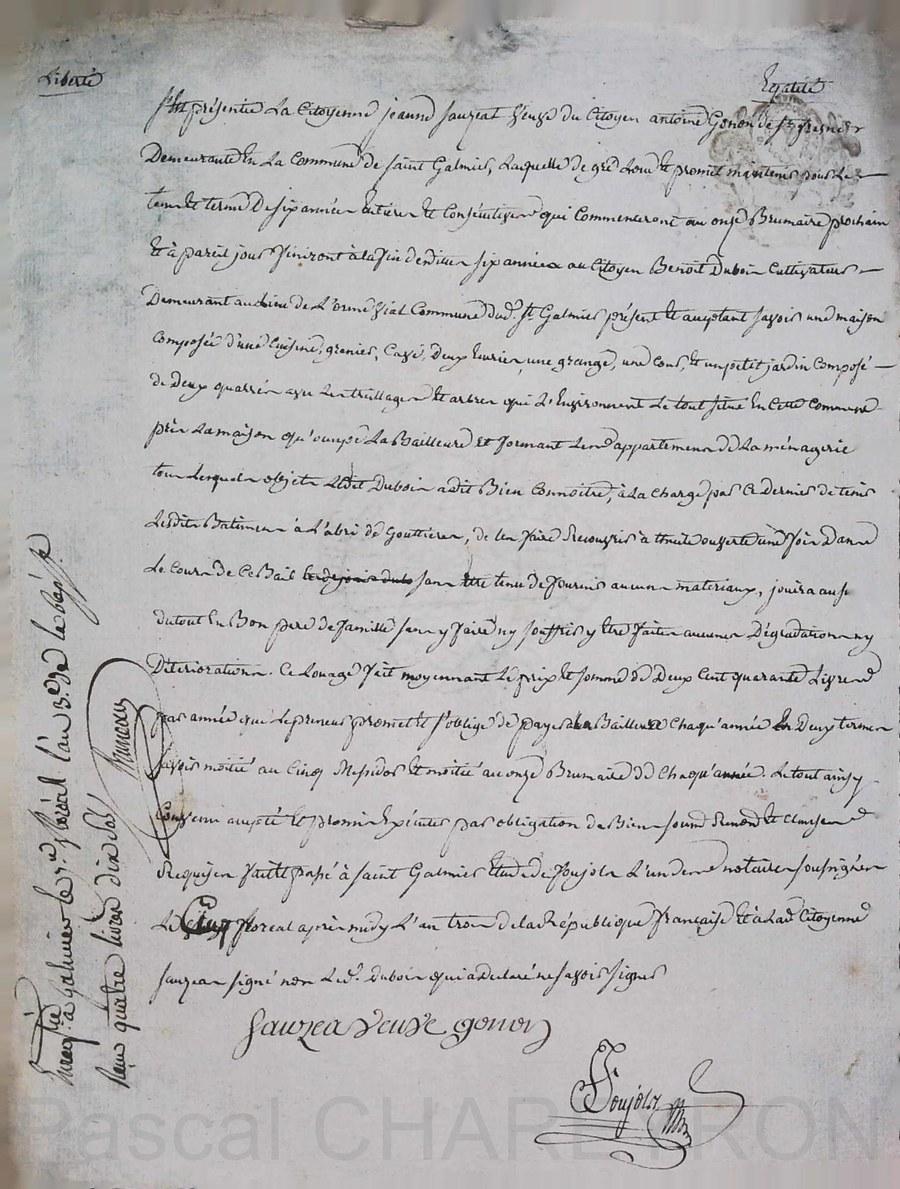 Liberté
Egalité
S'est présentée La Citoyenne jeanne sauzeat veuve du Citoyen antoine Gonon de
Demeurante En La Commune de Saint Galmier, Laquelle de gré Loue Et promet maintenir pour Le
tems et terme De six années Entieres Et Consécutives qui Commenceront au onze Brumaire prochain
Et à pareil jour finiront à la fin desdittes six années au Citoyen Benoit Dubois Cultivateur
Demeurant au Lieu de L'orme Commune dud. St Galmier présent Et acceptant savoir une maison
Composée d'une Cuisine, grenier, Cave, Deux Ecuries, une grange, une Cour, Et un petit jardin Composé
de Deux quarrés avec Les treillages Et arbres qui L'Environnent Le tout situé En Cette Commune
près La maison qu'occupe La Bailleure Et formant Les appartemens de La ménagerie
tous Lesquels objets Ledit Dubois a dit Bien Connoitre, à La Charge par Ce Dernier de tenir
Lesdits Batimens à L'abri de Gouttieres, de Les faire Recouvrir à thuile ouverte une fois Dans
Le Cours de Ce Bail sans être tenu de fournir aucuns materiaux, jouira au s
du tout En Bon pere de famille sans y faire ny souffrir y être faites aucunes Dégradations ny
Déteriorations. Ce Louage fait moyennant Le prix Et somme de Deux Cent quarante Livres
par année que Le preneur promet Et s'oblige de payer à La Bailleure Chaqu'année En Deux termes
savoir moitié au Cinq Messidor Et moitié au onze Brumaire de Chaqu'année. Le tout ainsy
Convenu accepté Et promis Exécuter par obligation de Biens soumd Renond Et Clauses
Requises fait Et passé à Saint Galmier Etude de Foujols L'un des notaires soussignés
Le Cinq floreal après midy L'an trois de La République française Et à Lad. Citoyenne
sauzeat signé non Led. Dubois qui a Declaré ne savoir signer
Sauzea veuve gonon
Foujols
Enreg.tré à Galmier le 5.e floréal l'an 3.e de la Rép. f.
Reçu quatre livres dix sols
Pascal CHAREYRON